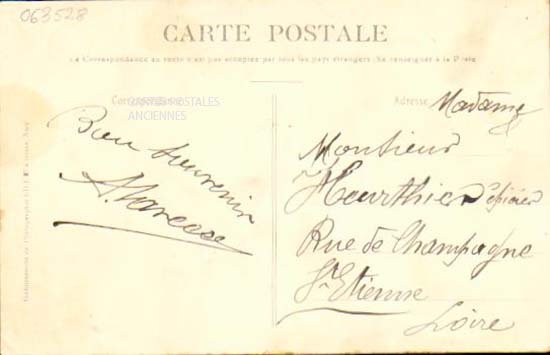 063528
CARTE POSTALE
La Correspondance au recto n'est pas acceptée par tous les pays étrangers (Se renseigner à la Poste)
CARTES POSTALES
ANCIENNES
Adresse
Bon souvenir
Madame
Monsieur
Heurthier Épicier
Rue de Champagne
St Etienne
Loire